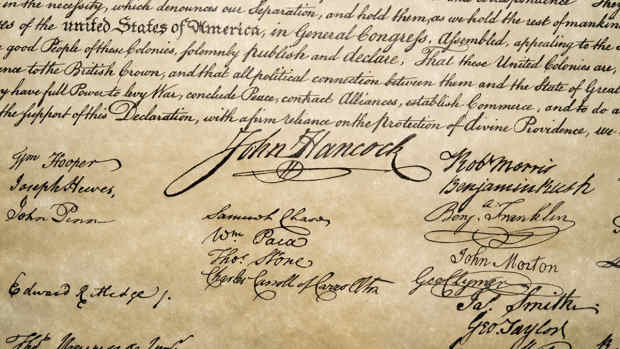 in the necessity, which denounces our Separation, and hold them, as we hold the rest of mankind
es of the united States of America, in General Congress, Assembled, appealing to the
good People of these Colonies, solemnly publish and declare, That these United Colonies are,
ence to the British Crown, and that all political connection between them and the State of Great
y have full Power to levy War, conclude Peace, contract Alliances, establish Commerce, and to do a
the support of this Declaration, with a firm reliance on the Protection of divine Providence, we
John Hancock
Wm Hooper
Joseph Hewes,
John Penn
Edward Rutledge j.
Samuel Chase
Wm. Paca
Thos. Stone
Charles Carroll of Carrollton
Robt Morris
Benjamin Rush
Benj. Franklin
John Morton
Geo Clymer
Jas. Smith
Geo. Taylor